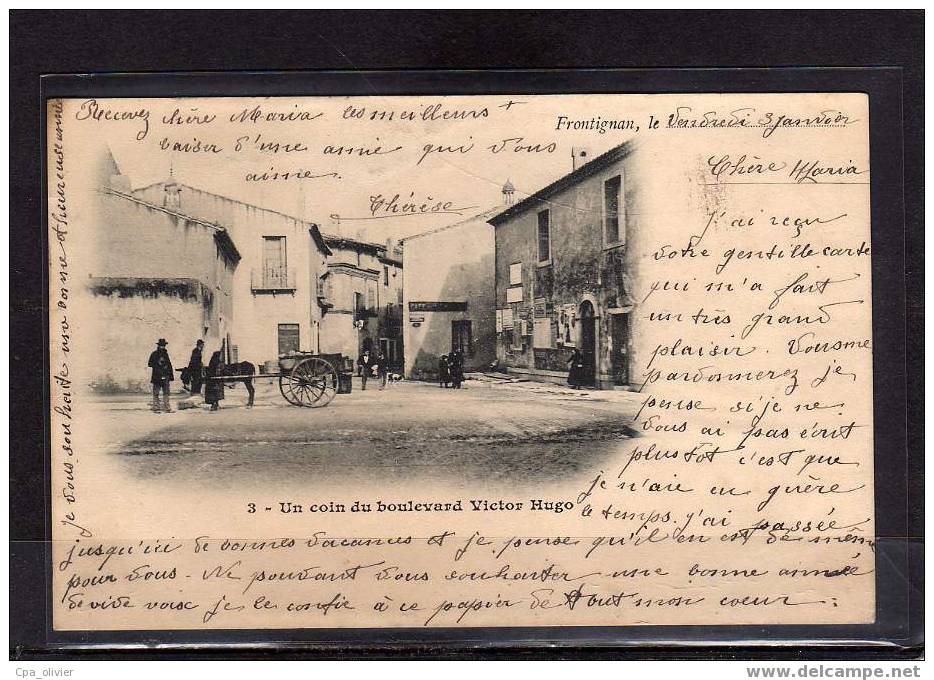 Frontignan, le Vendredi 3 Janvier
Chère Maria
J'ai reçu
votre gentille carte
qui m'a fait
un très grand
plaisir. Vous me
pardonnerez je
pense si je ne
vous ai pas écrit
plus tôt c'est que
je n'aie eu guère
le temps. j'ai passée
jusqu'ici de bonnes vacances et je pense qu'il en est de même
pour vous. Ne pouvant vous souhaiter une bonne année
de vive voix je le confie à ce papier de tout mon coeur:
Je vous souhaite une bonne et heureuse année
Recevez chère Maria les meilleurs
baiser d'une amie qui vous
aime.
Thérèse
3 - Un coin du boulevard Victor Hugo
Cpa_olivier
www.delcampe.net